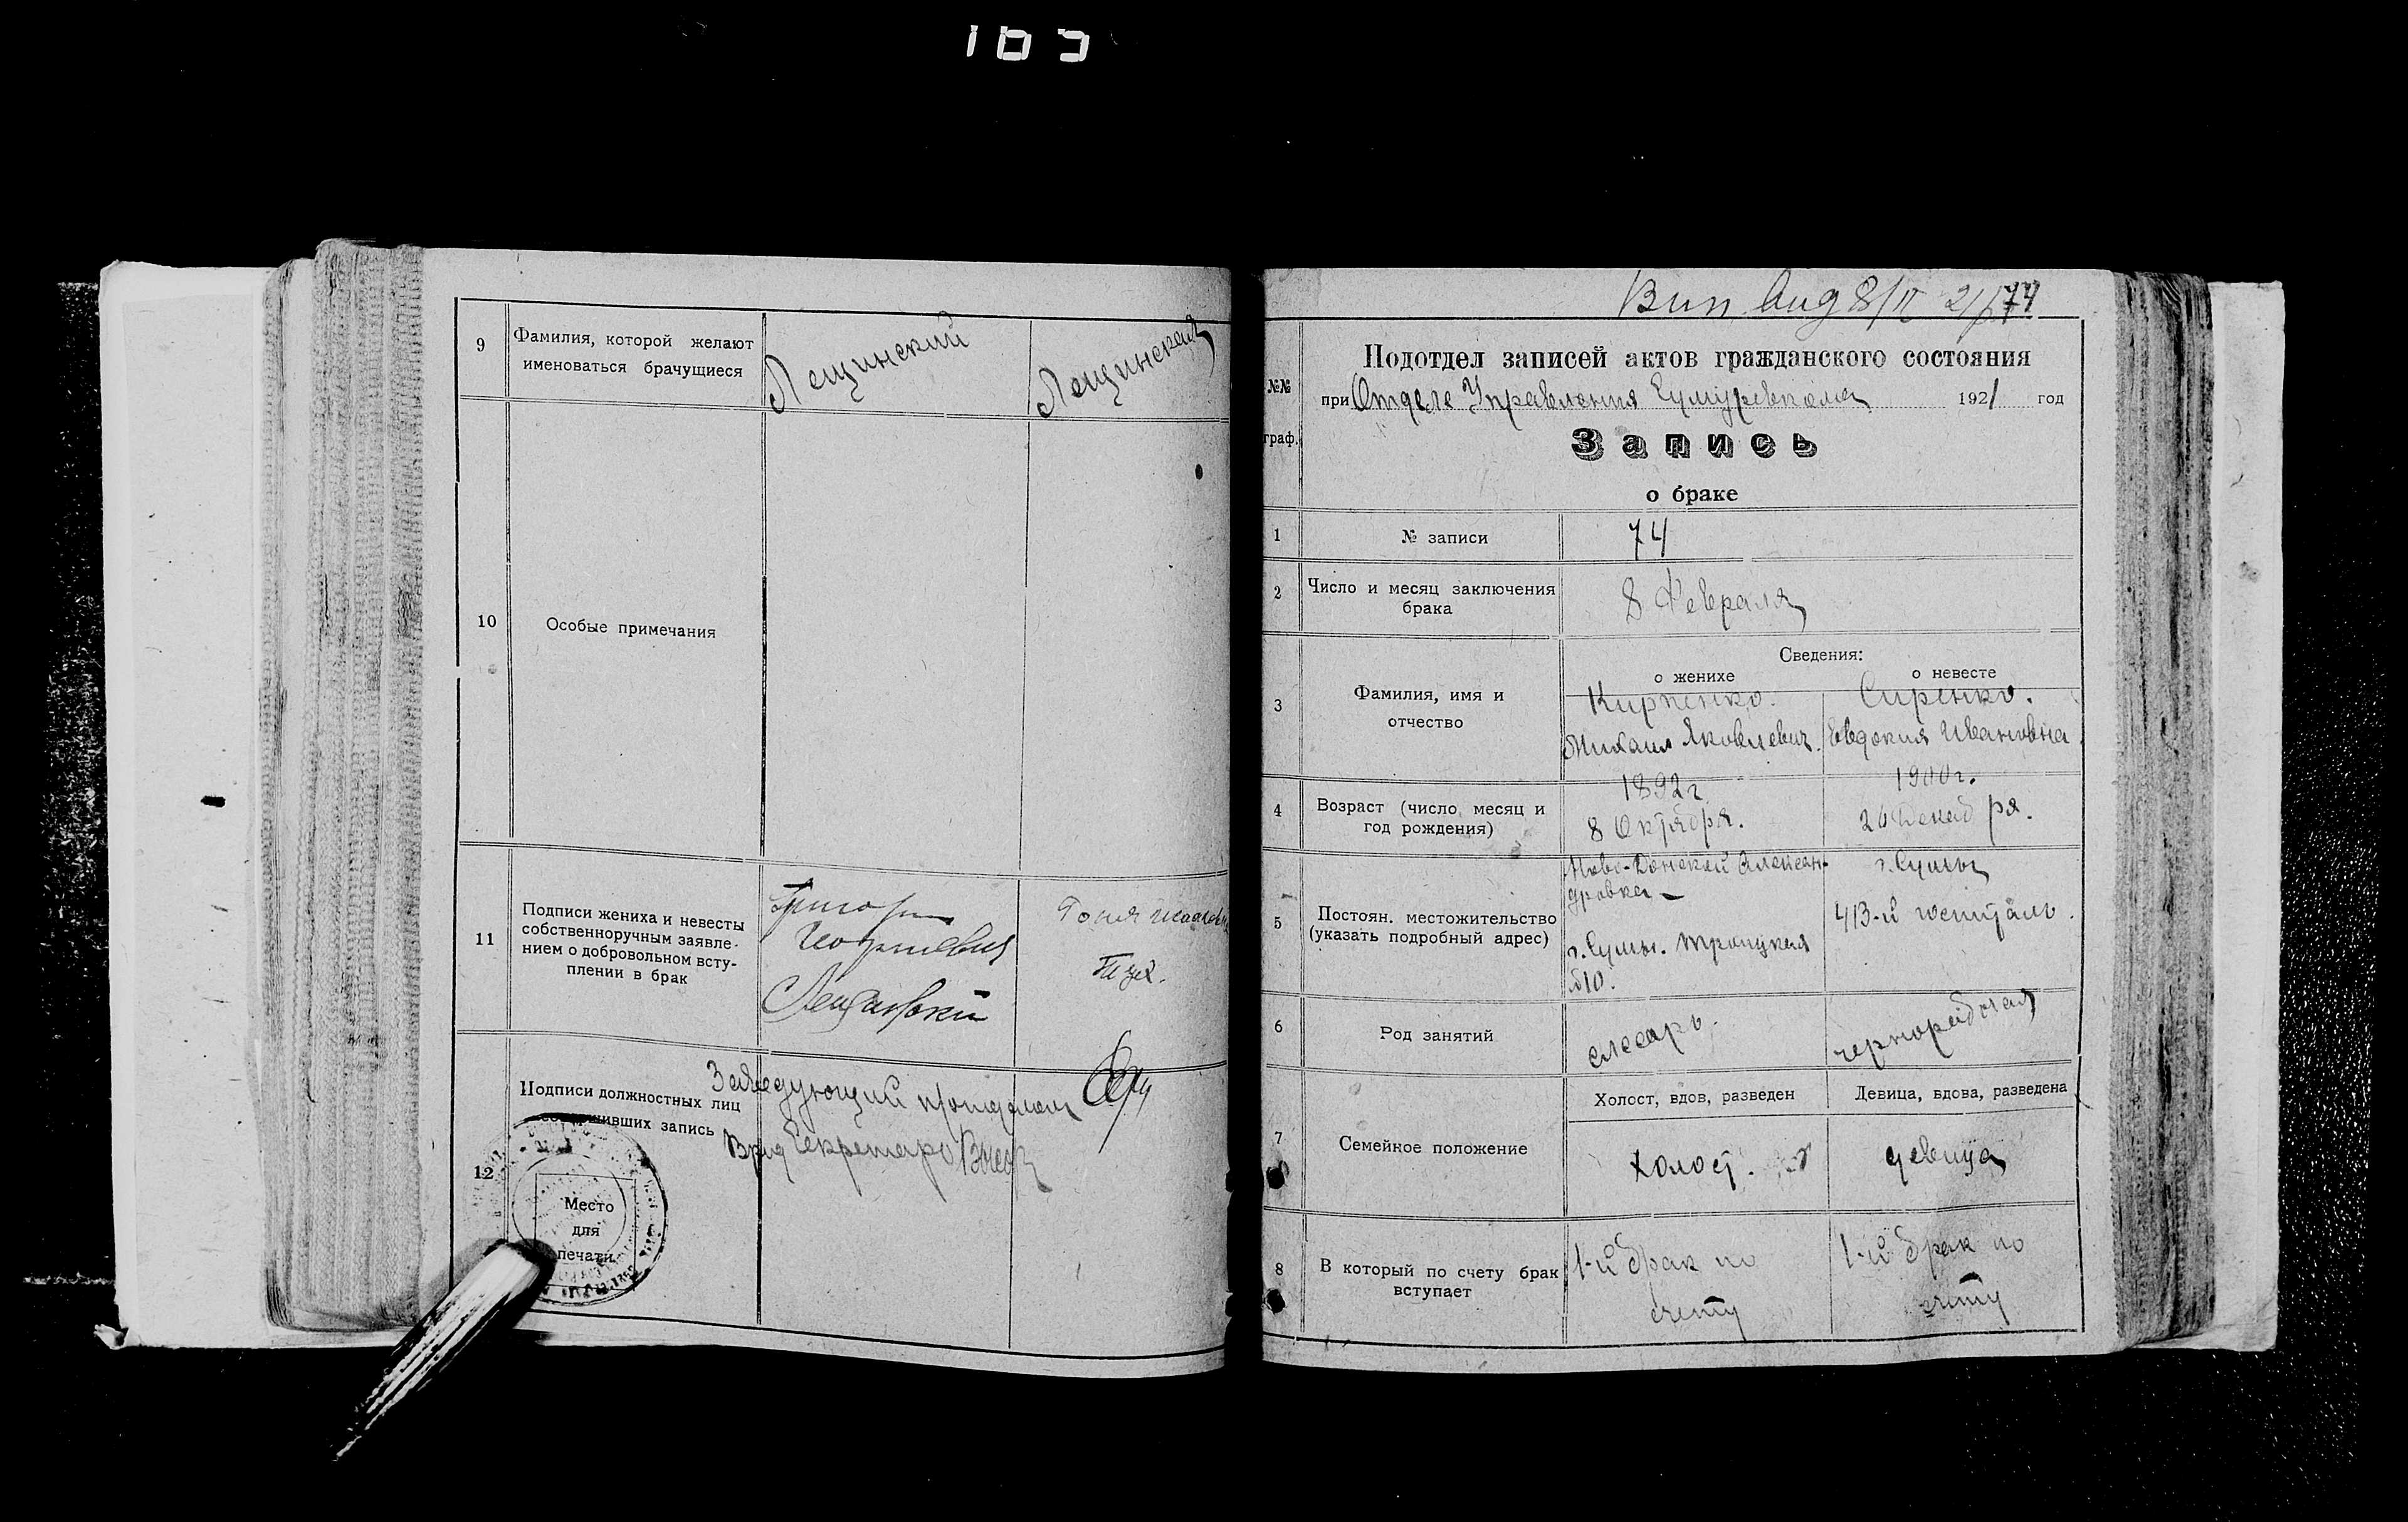 9
Фамилия, которой желают
именоваться брачущиеся
Лещинский
Лещинская
10
Особые примечания
11
Подписи жениха и невесты
собственноручным заявле-
нием о добровольном всту-
плении в брак
12
Подписи должностных лиц
запись
Заведующий
Секретарь
Место
для
печати
74
№№
граф.
Подотдел записей актов гражданского состояния
при Отделе Управления Сумуревкома 1921 год
Запись
о браке
1
№ записи
74
2
Число и месяц заключения
брака
8 Февраля
3
Фамилия, имя и
отчество
Сведения:
о женихе
о невесте
Кирпенко.
Михаил Яковлевич.
Сиренко.
Евдокия Ивановна
4
Возраст (число, месяц и
год рождения)
1892 г.
8 Октября.
1900 г.
Декабря.
5
Постоян. местожительство
(указать подробный адрес)
Ново-Донской Алексан-
дровка
г. Сумы. Троицкая
№10.
г. Сумы
413-й госпиталь.
6
Род занятий
слесарь.
чернорабочая
7
Семейное положение
Холост, вдов, разведен
Девица, вдова, разведена
холост.
девица
8
В который по счету брак
вступает
1-й брак по
счету
1-й брак по
счету